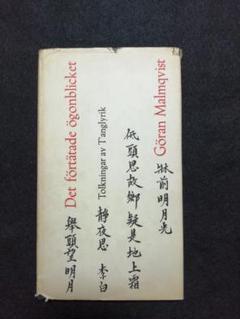 Det förtätade ögonblicket
Tolkningar av T'anglyrik
Göran Malmqvist
靜夜思 李白
牀前明月光
低頭思故鄉 疑是地上霜
舉頭望明月